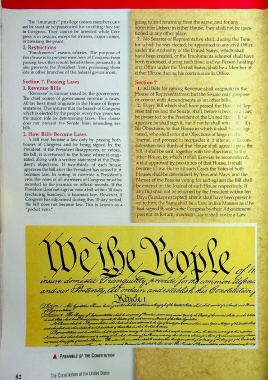 The "immunity" privilege means members can
not be sued or be prosecuted for anything they say
in Congress. They cannot be arrested while Con-
gress is in session, except for treason, major crimes,
or breaking the peace.
2. Restrictions
"Emoluments" means salaries. The purpose of
this clause is to prevent members of Congress from
passing laws that would benefit them personally. It
also prevents the President from promising them
jobs in other branches of the federal government.
Section 7. Passing Laws
1. Revenue Bills
"Revenue" is income raised by the government.
The chief source of government revenue is taxes.
All tax laws must originate in the House of Repre-
sentatives. This insures that the branch of Congress
which is elected by the people every two years has
the major role in determining taxes. This clause
does not prevent the Senate from amending tax
bills.
2. How Bills Become Laws
A bill may become a law only by passing both
houses of Congress and by being signed by the
President. If the President disapproves, or vetoes,
the bill, it is returned to the house where it origi-
nated, along with a written statement of the Presi-
dent's objections. If two-thirds of each house
approves the bill after the President has vetoed it, it
becomes law. In voting to override a President's
veto, the votes of all members of Congress must be
recorded in the journals or official records. If the
President does not sign or veto a bill within 10 days
(excluding Sundays), it becomes law. However, if
Congress has adjourned during this 10-day period,
the bill does not become law. This is known as a
"pocket veto."
going to and returning from the same; and for any
Speech or Debate in either House, they shall not be ques-
tioned in any other place.
2. No Senator or Representative shall, during the Time
for which he was elected, be appointed to any civil Office
under the Authority of the United States, which shall
have been created, or the Emoluments whereof shall have
been increased, during such time; and no Person holding
any Office under the United States, shall be a Member of
either House during his continuance in Office.
Section 7
1. All Bills for raising Revenue shall originate in the
House of Representatives; but the Senate may propose
or concur with Amendments as on other Bills.
2. Every Bill which shall have passed the House of Rep-
resentatives and the Senate, shall, before it become a Law,
be presented to the President of the United States; If he
approve he shall sign it, but if not he shall return it, with
his Objections, to that House in which it shall have origi-
nated, who shall enter the Objections at large on their
Journal, and proceed to reconsider it. If after such Recon-
sideration two thirds of that House shall agree to pass the
Bill, it shall be sent, together with the Objections, to the
other House, by which it shall likewise be reconsidered,
and if approved by two thirds of that House, it shall
become a Law. But in all such Cases the Votes of both
Houses shall be determined by Yeas and Nays, and the
Names of the Persons voting for and against the Bill shall
be entered on the Journal of each House respectively. If
any Bill shall not be returned by the President within ten
Days (Sundays excepted) after it shall have been present-
ed to him, the Same shall be a Law, in like Manner as if he
had signed it, unless the Congress by their Adjournment
prevent its Return, in which Case it shall not be a Law.
We the People of th
insure domestic Tranquility, provide for the common defence
and our Posterity, do ordain and establish this Constitution
Article I.
▲ PREAMBLE OF THE CONSTITUTION
82 The Constitution of the United States